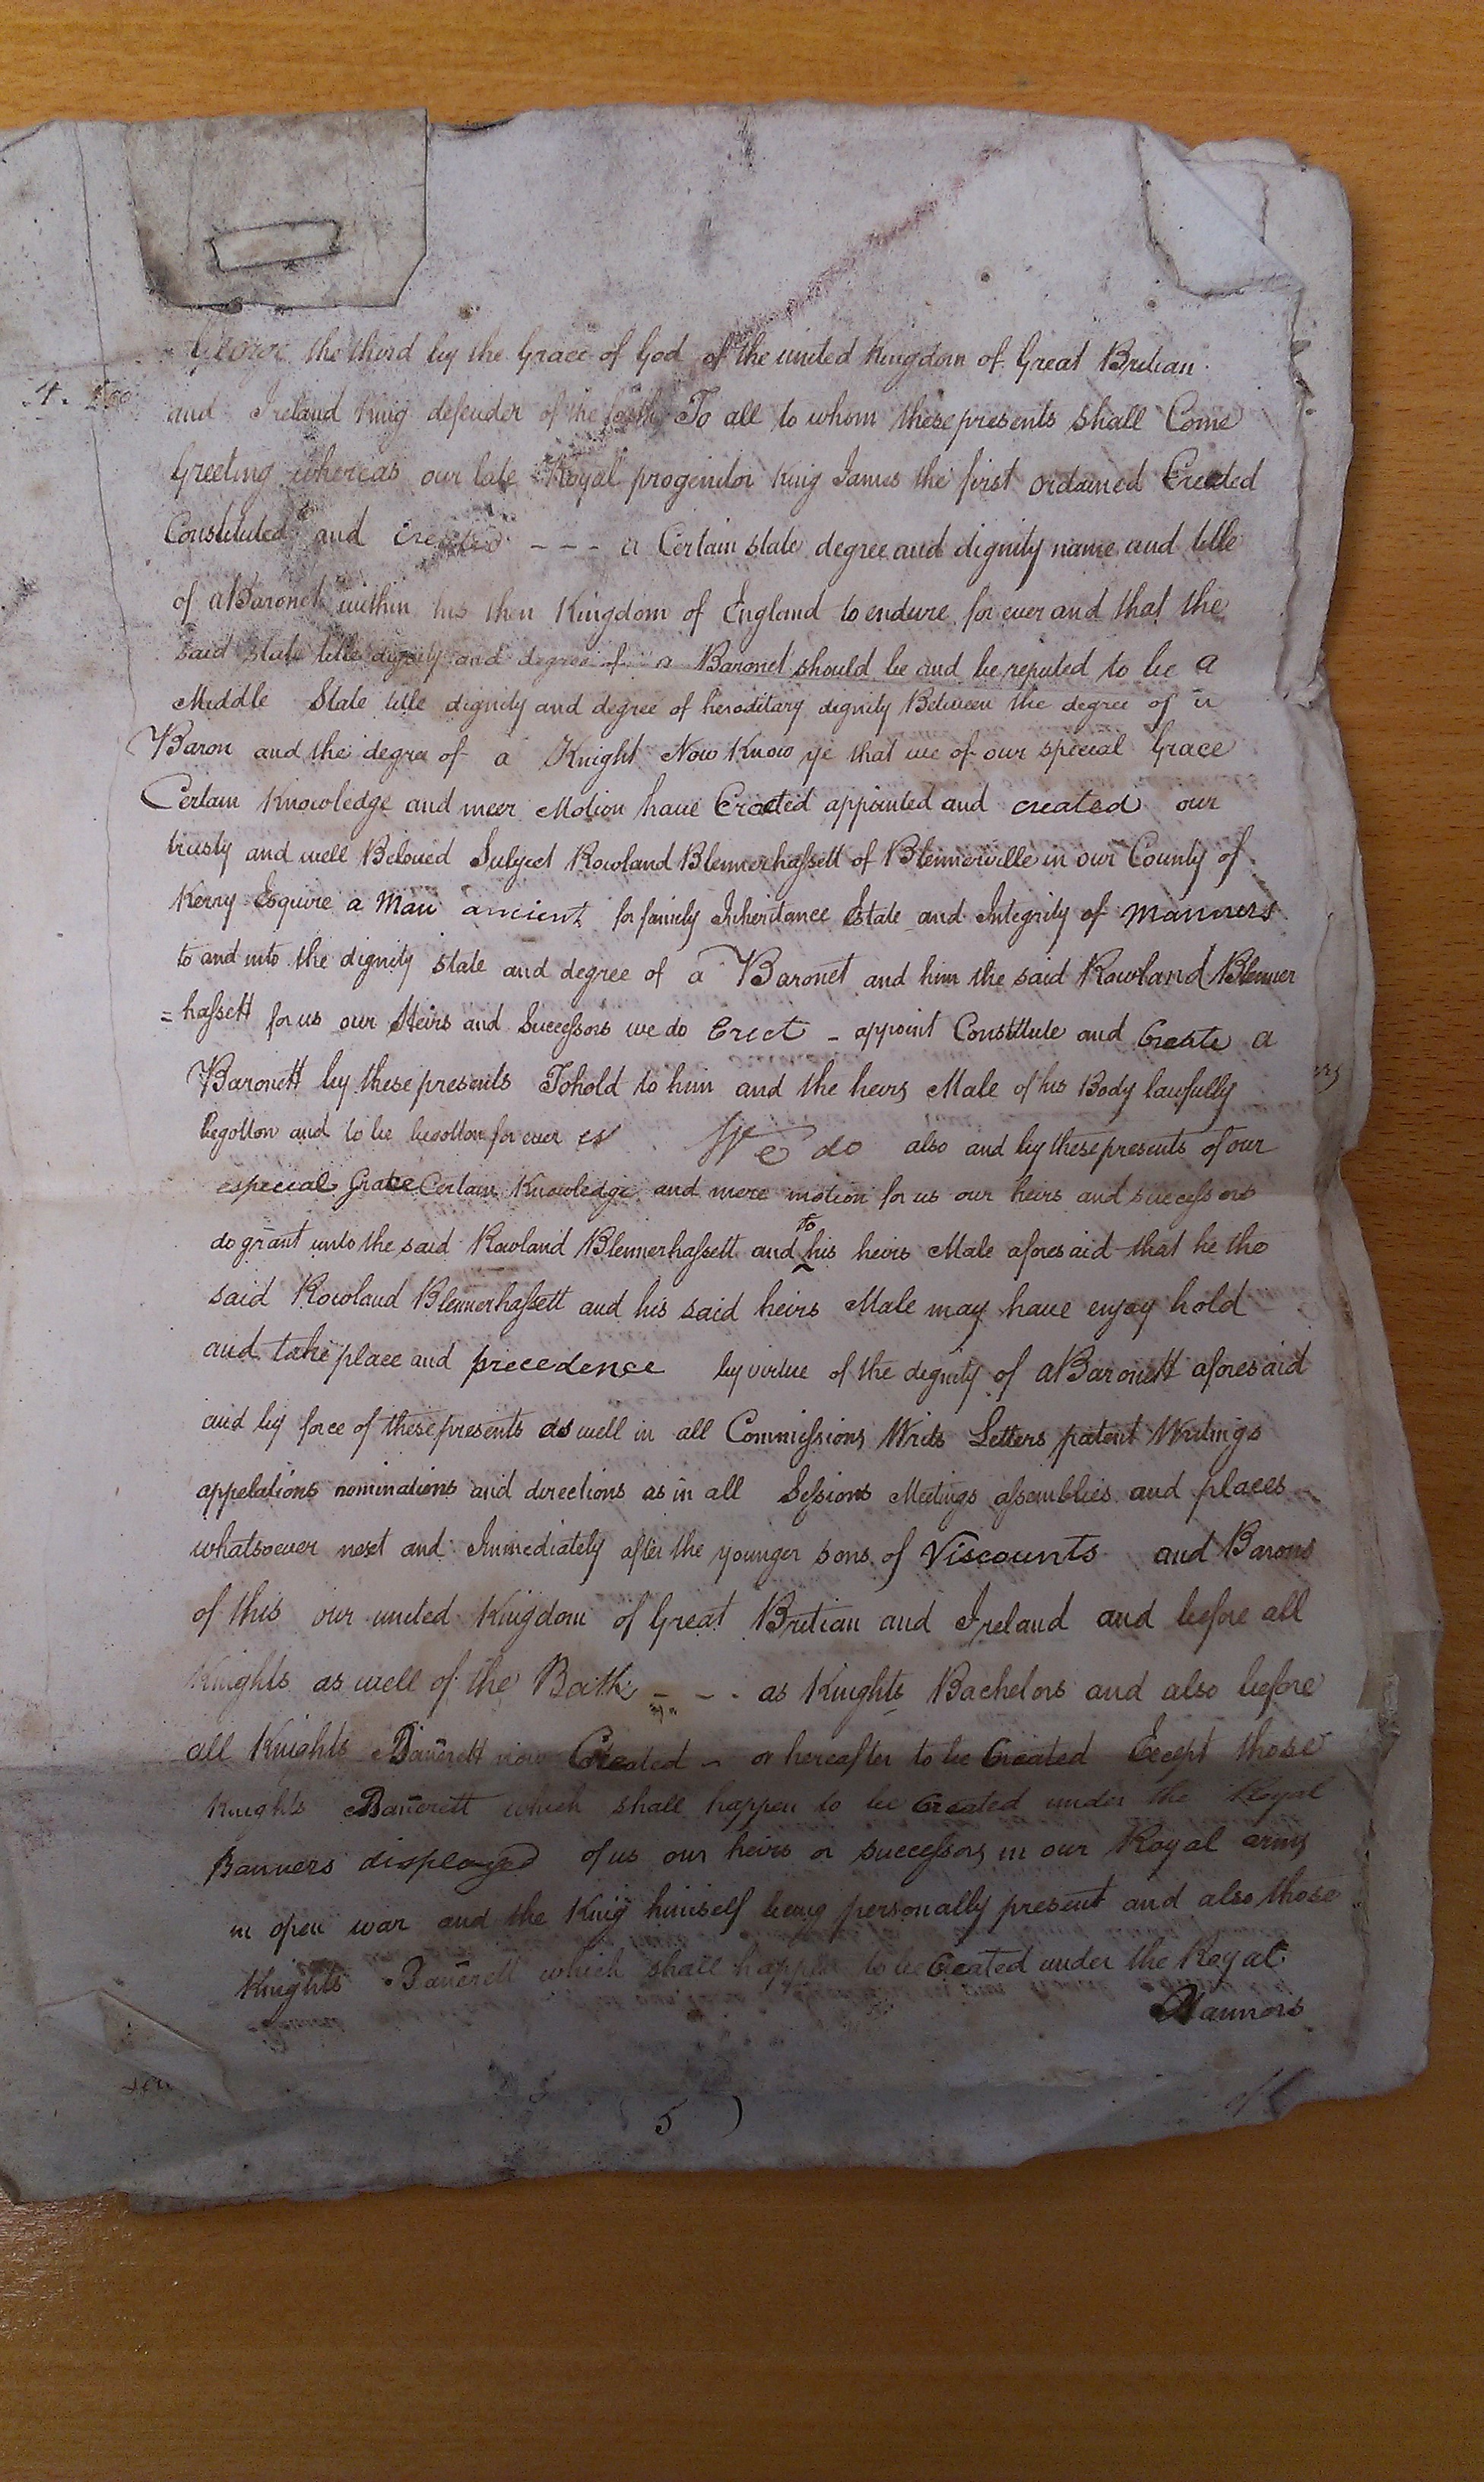 George the third by the Grace of God of the united Kingdom of Great Britian
4.
and Ireland King defender of the faith To all to whom these presents shall Come
Greeting whereas our late Royal progenitor King James the first ordained Erected
Constituted and created - - - a Certain state degree and dignity name and title
of a Baronet within his then Kingdom of England to endure for ever and that the
said state title dignity and degree of a Baronet should be and be reputed to be a
Middle State title dignity and degree of hereditary dignity Between the degree of a
Baron and the degree of a Knight Now Know ye that we of our special Grace
Certain Knowledge and meer Motion have Erected appointed and created our
trusty and well Beloved Subject Rowland Blennerhassett of Blennerville in our County of
Kerry Esquire a Man ancient for family Inheritance Estate and Integrity of manners
to and into the dignity state and degree of a Baronet and him the said Rowland Blenner
= hassett for us our Heirs and Successors we do Erect - appoint Constitute and Create a
Baronett by these presents To hold to him and the heirs Male of his Body lawfully
begotton and to be begotton for ever We do also and by these presents of our
especial Grace Certain Knowledge and mere motion for us our heirs and successors
do grant unto the said Rowland Blennerhassett and to his heirs Male aforesaid that he the
said Rowland Blennerhassett and his said heirs Male may have enjoy hold
and take place and precedence by virtue of the dignity of a Baronett aforesaid
and by force of these presents as well in all Commissions Writs Letters patent Writings
appelations nominations and directions as in all Sessions Meetings assemblies and places
whatsoever next and Immediately after the younger sons of Viscounts and Barons
of this our united Kingdom of Great Britian and Ireland and before all
Knights as well of the Bath - - - as Knights Bachelors and also before
all Knights Banerett now Created - or hereafter to be Created Except those
Knights Banerett which shall happen to be Created under the Royal
Banners displayed of us our heirs or successors in our Royal army
in open war and the King himself being personally present and also those
Knights Banerett which shall happen to be Created under the Royal
Banners
5 )